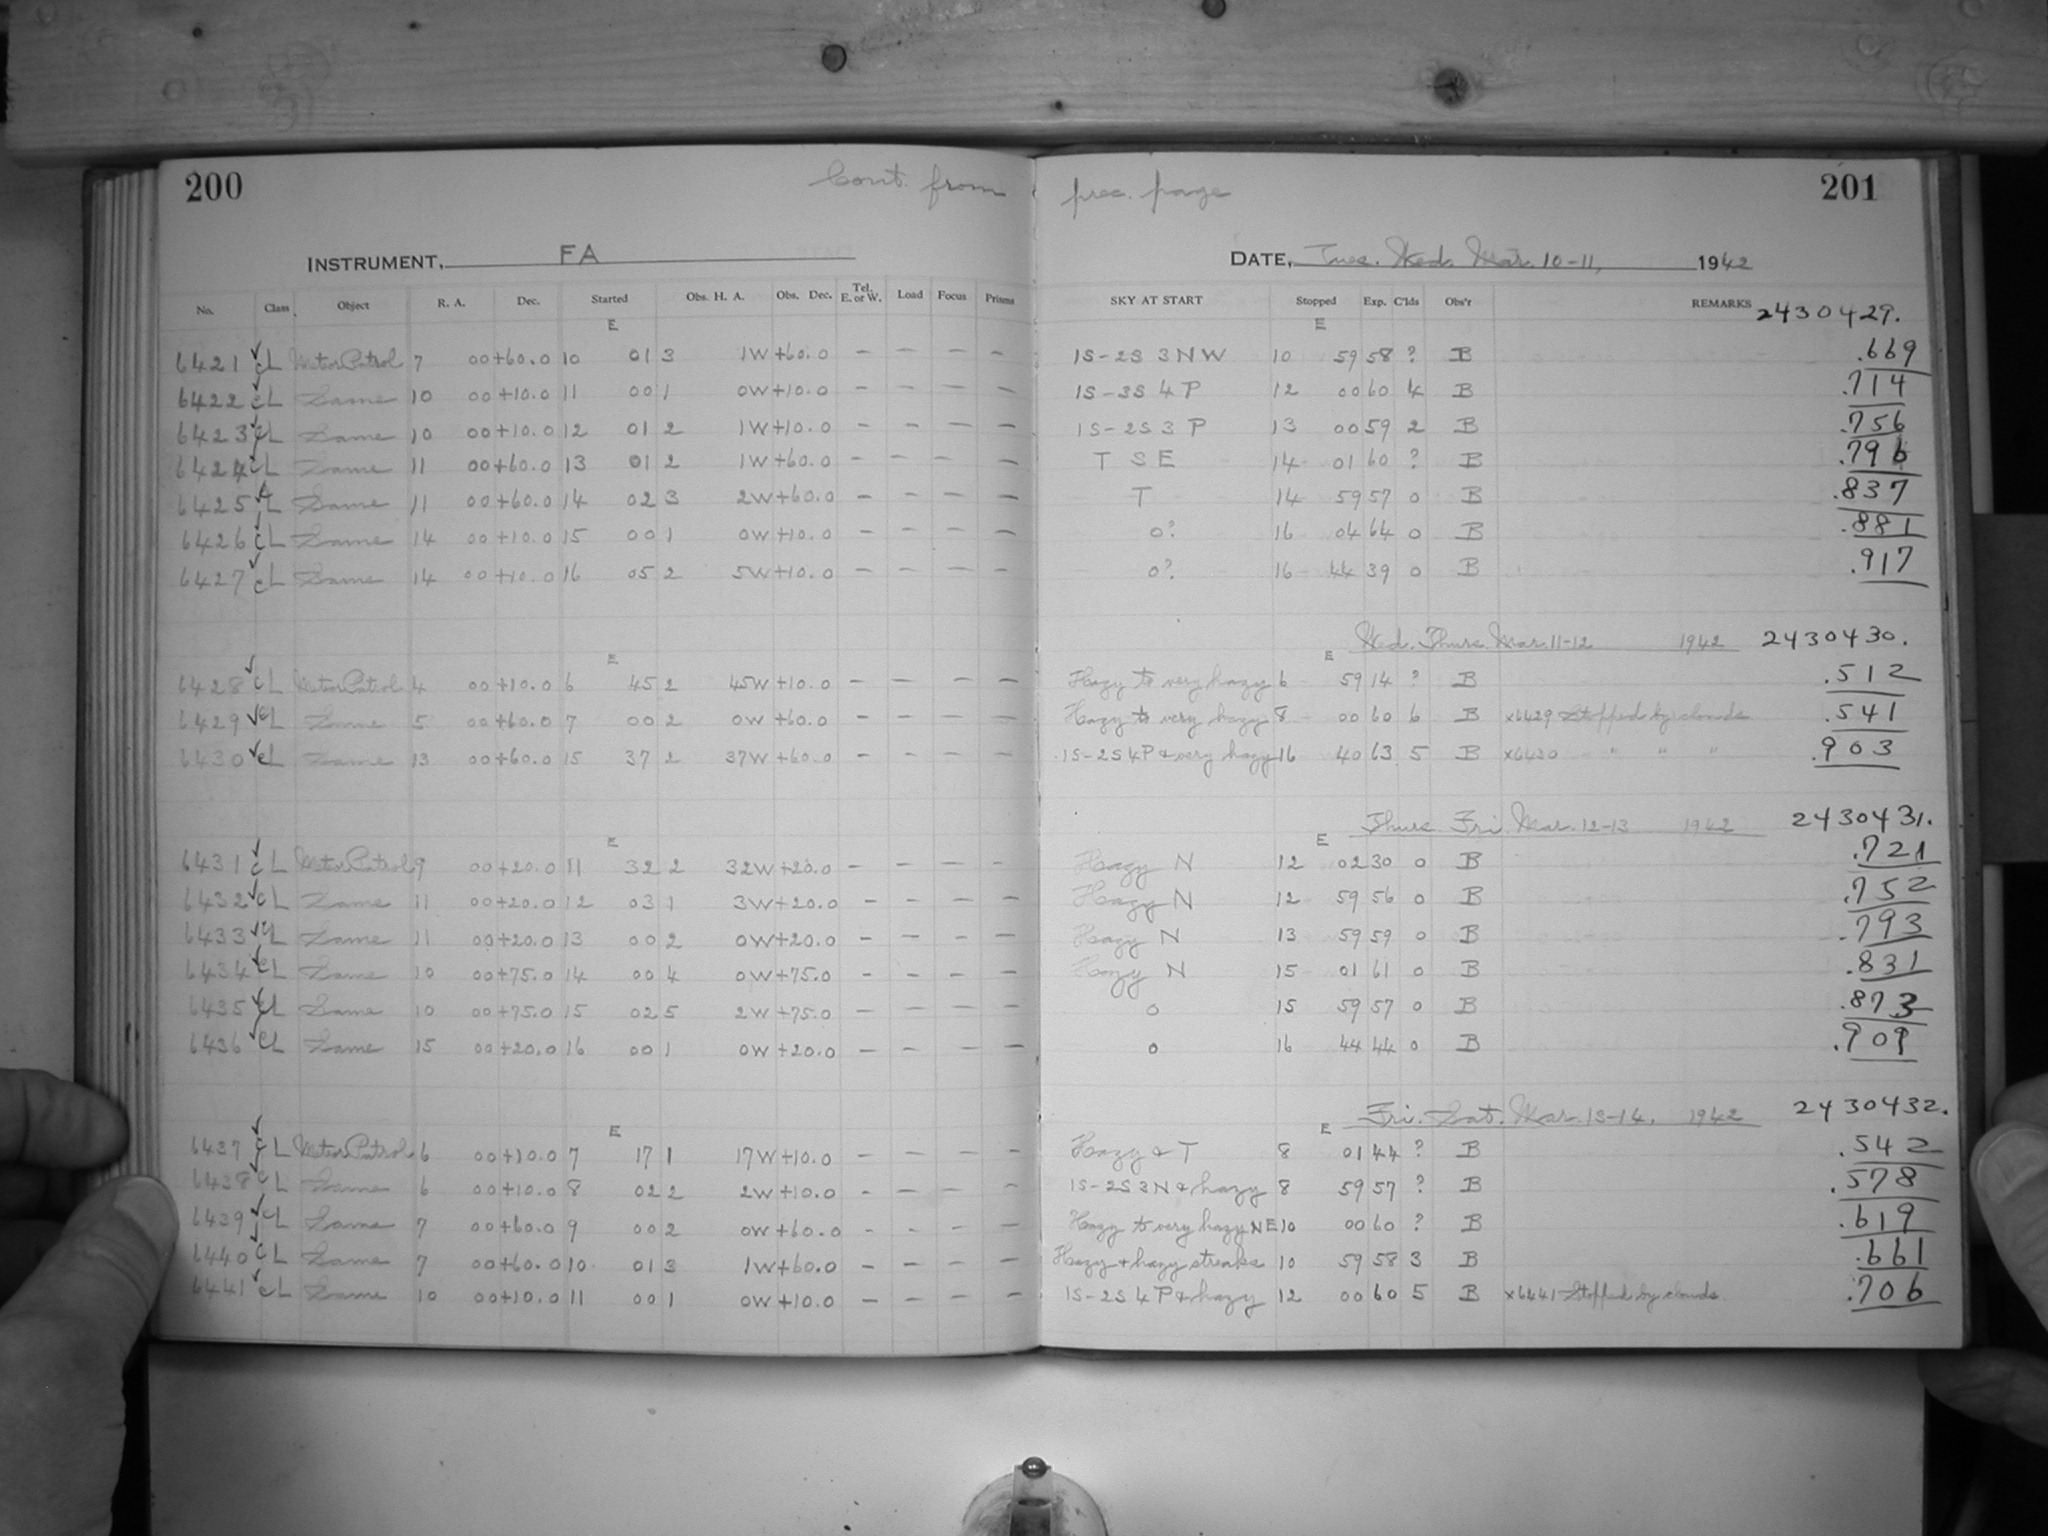 200 Cont. from prec. page 201
INSTRUMENT, FA DATE, Tues. Wed. Mar. 10-11, 1942
No. Class Object R. A. Dec. Started Obs. H. A. Obs. Dec. Tel. E. or W. Load Focus Prisms SKY AT START Stopped Exp. C'lds Obs'r REMARKS 2430429.
E E
6421 CL MeteorPatrol 7 00 +60.0 10 01 3 1W +60.0 - - - - 1S-2S 3NW 10 59 58 ? B .669
6422 CL Same 10 00 +10.0 11 00 1 0W +10.0 - - - - 1S-3S 4P 12 00 60 4 B .714
6423 CL Same 10 00 +10.0 12 01 2 1W +10.0 - - - - 1S-2S 3P 13 00 59 2 B .756
6424 CL Same 11 00 +60.0 13 01 2 1W +60.0 - - - - T SE 14 01 60 ? B .796
6425 CL Same 11 00 +60.0 14 02 3 2W +60.0 - - - - T 14 59 57 0 B .837
6426 CL Same 14 00 +10.0 15 00 1 0W +10.0 - - - - 0? 16 04 64 0 B .881
6427 CL Same 14 00 +10.0 16 05 2 5W +10.0 - - - - 0? 16 44 39 0 B .917
Wed. Thurs. Mar. 11-12 1942 2430430.
E E
6428 CL MeteorPatrol 4 00 +10.0 6 45 2 45W +10.0 - - - - Hazy to very hazy 6 59 14 ? B .512
6429 CL Same 5 00 +60.0 7 00 2 0W +60.0 - - - - Hazy to very hazy 8 00 60 6 B x6429 Stopped by clouds .541
6430 CL Same 13 00 +60.0 15 37 2 37W +60.0 - - - - 1S-2S 4P & very hazy 16 40 63 5 B x6430 " " " .903
Thurs. Fri. Mar. 12-13 1942 2430431.
E E
6431 CL MeteorPatrol 9 00 +20.0 11 32 2 32W +20.0 - - - - Hazy N 12 02 30 0 B .721
6432 CL Same 11 00 +20.0 12 03 1 3W +20.0 - - - - Hazy N 12 59 56 0 B .752
6433 CL Same 11 00 +20.0 13 00 2 0W +20.0 - - - - Hazy N 13 59 59 0 B .793
6434 CL Same 10 00 +75.0 14 00 4 0W +75.0 - - - - Hazy N 15 01 61 0 B .831
6435 CL Same 10 00 +75.0 15 02 5 2W +75.0 - - - - 0 15 59 57 0 B .873
6436 CL Same 15 00 +20.0 16 00 1 0W +20.0 - - - - 0 16 44 44 0 B .909
Fri. Sat. Mar. 13-14, 1942 2430432.
E E
6437 CL MeteorPatrol 6 00 +10.0 7 17 1 17W +10.0 - - - - Hazy & T 8 01 44 ? B .542
6438 CL Same 6 00 +10.0 8 02 2 2W +10.0 - - - - 1S-2S 3N & hazy 8 59 57 ? B .578
6439 CL Same 7 00 +60.0 9 00 2 0W +60.0 - - - - Hazy to very hazy NE 10 00 60 ? B .619
6440 CL Same 7 00 +60.0 10 01 3 1W +60.0 - - - - Hazy + hazy streaks 10 59 58 3 B .661
6441 CL Same 10 00 +10.0 11 00 1 0W +10.0 - - - - 1S-2S 4P & hazy 12 00 60 5 B x6441 Stopped by clouds. .706